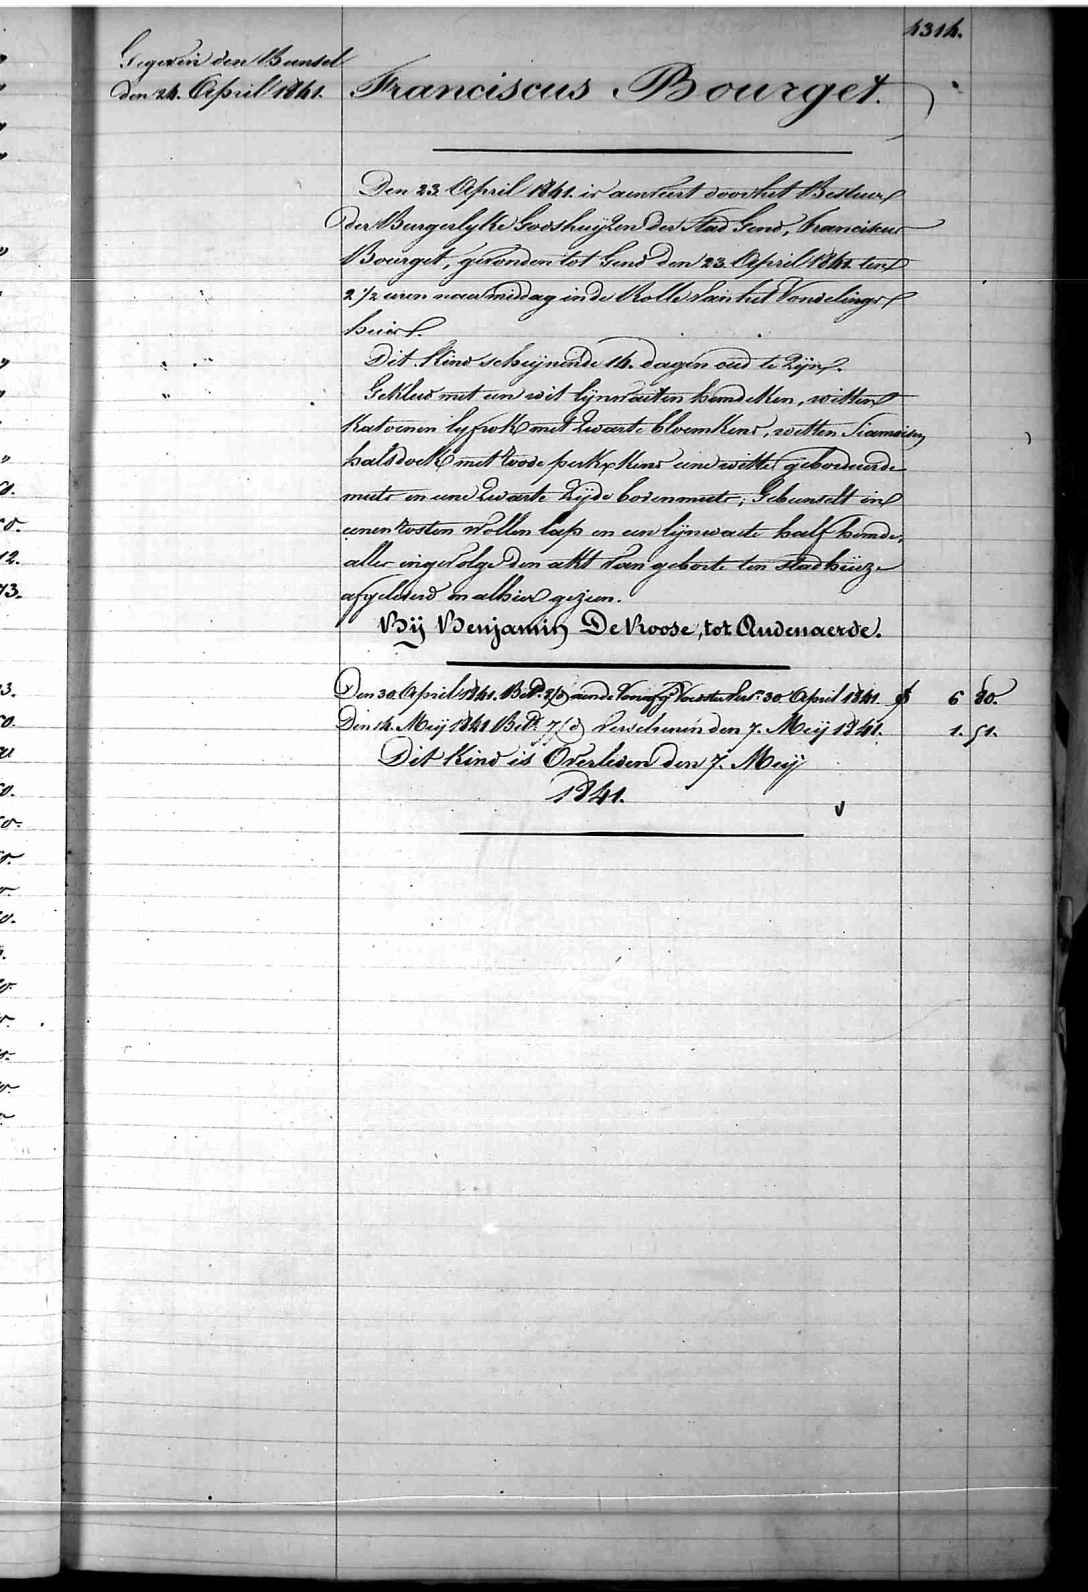 4314.
Gegeven den Bunsel
den 24. April 1841.
Franciscus Bourget.
Den 23. April 1841. is aenveirt door het Bestuur
der Burgerlyke Godshuyzen der Stad Gend, Franciscus
Bourget, gevonden tot Gend den 23. April 1841. ten
2 1/2 uren naermiddag in de Rolle van het Vondelings
huis.
Dit kind schynende 14. dagen oud te zyn.
Gekleed met een wit lynwaeten hemdeken, witten
katoenen lyfrok met zwarte bloemkens, witten Siamoisen
halsdoek met roode perkxkens eene witte geborduerde
muts en eene zwarte zyde bovenmuts; Gebunselt in
eenen rosten wollen lap en een lynwaete half hemde,
alles ingevolge den akt van geboorte ten stadhuize
afgeleverd en alhier gezien.
Bÿ Benjamin De Roose, tot Audenaerde.
Den 30. April 1841. Bet.d 30. April 1841 6 80.
Den 14. Meÿ 1841 Bet.d verschenen den 7. Meÿ 1841. 1. 51.
Dit Kind is Overleden den 7. Meÿ
1841.
0.
12.
73.
3.
0.
0.
0.